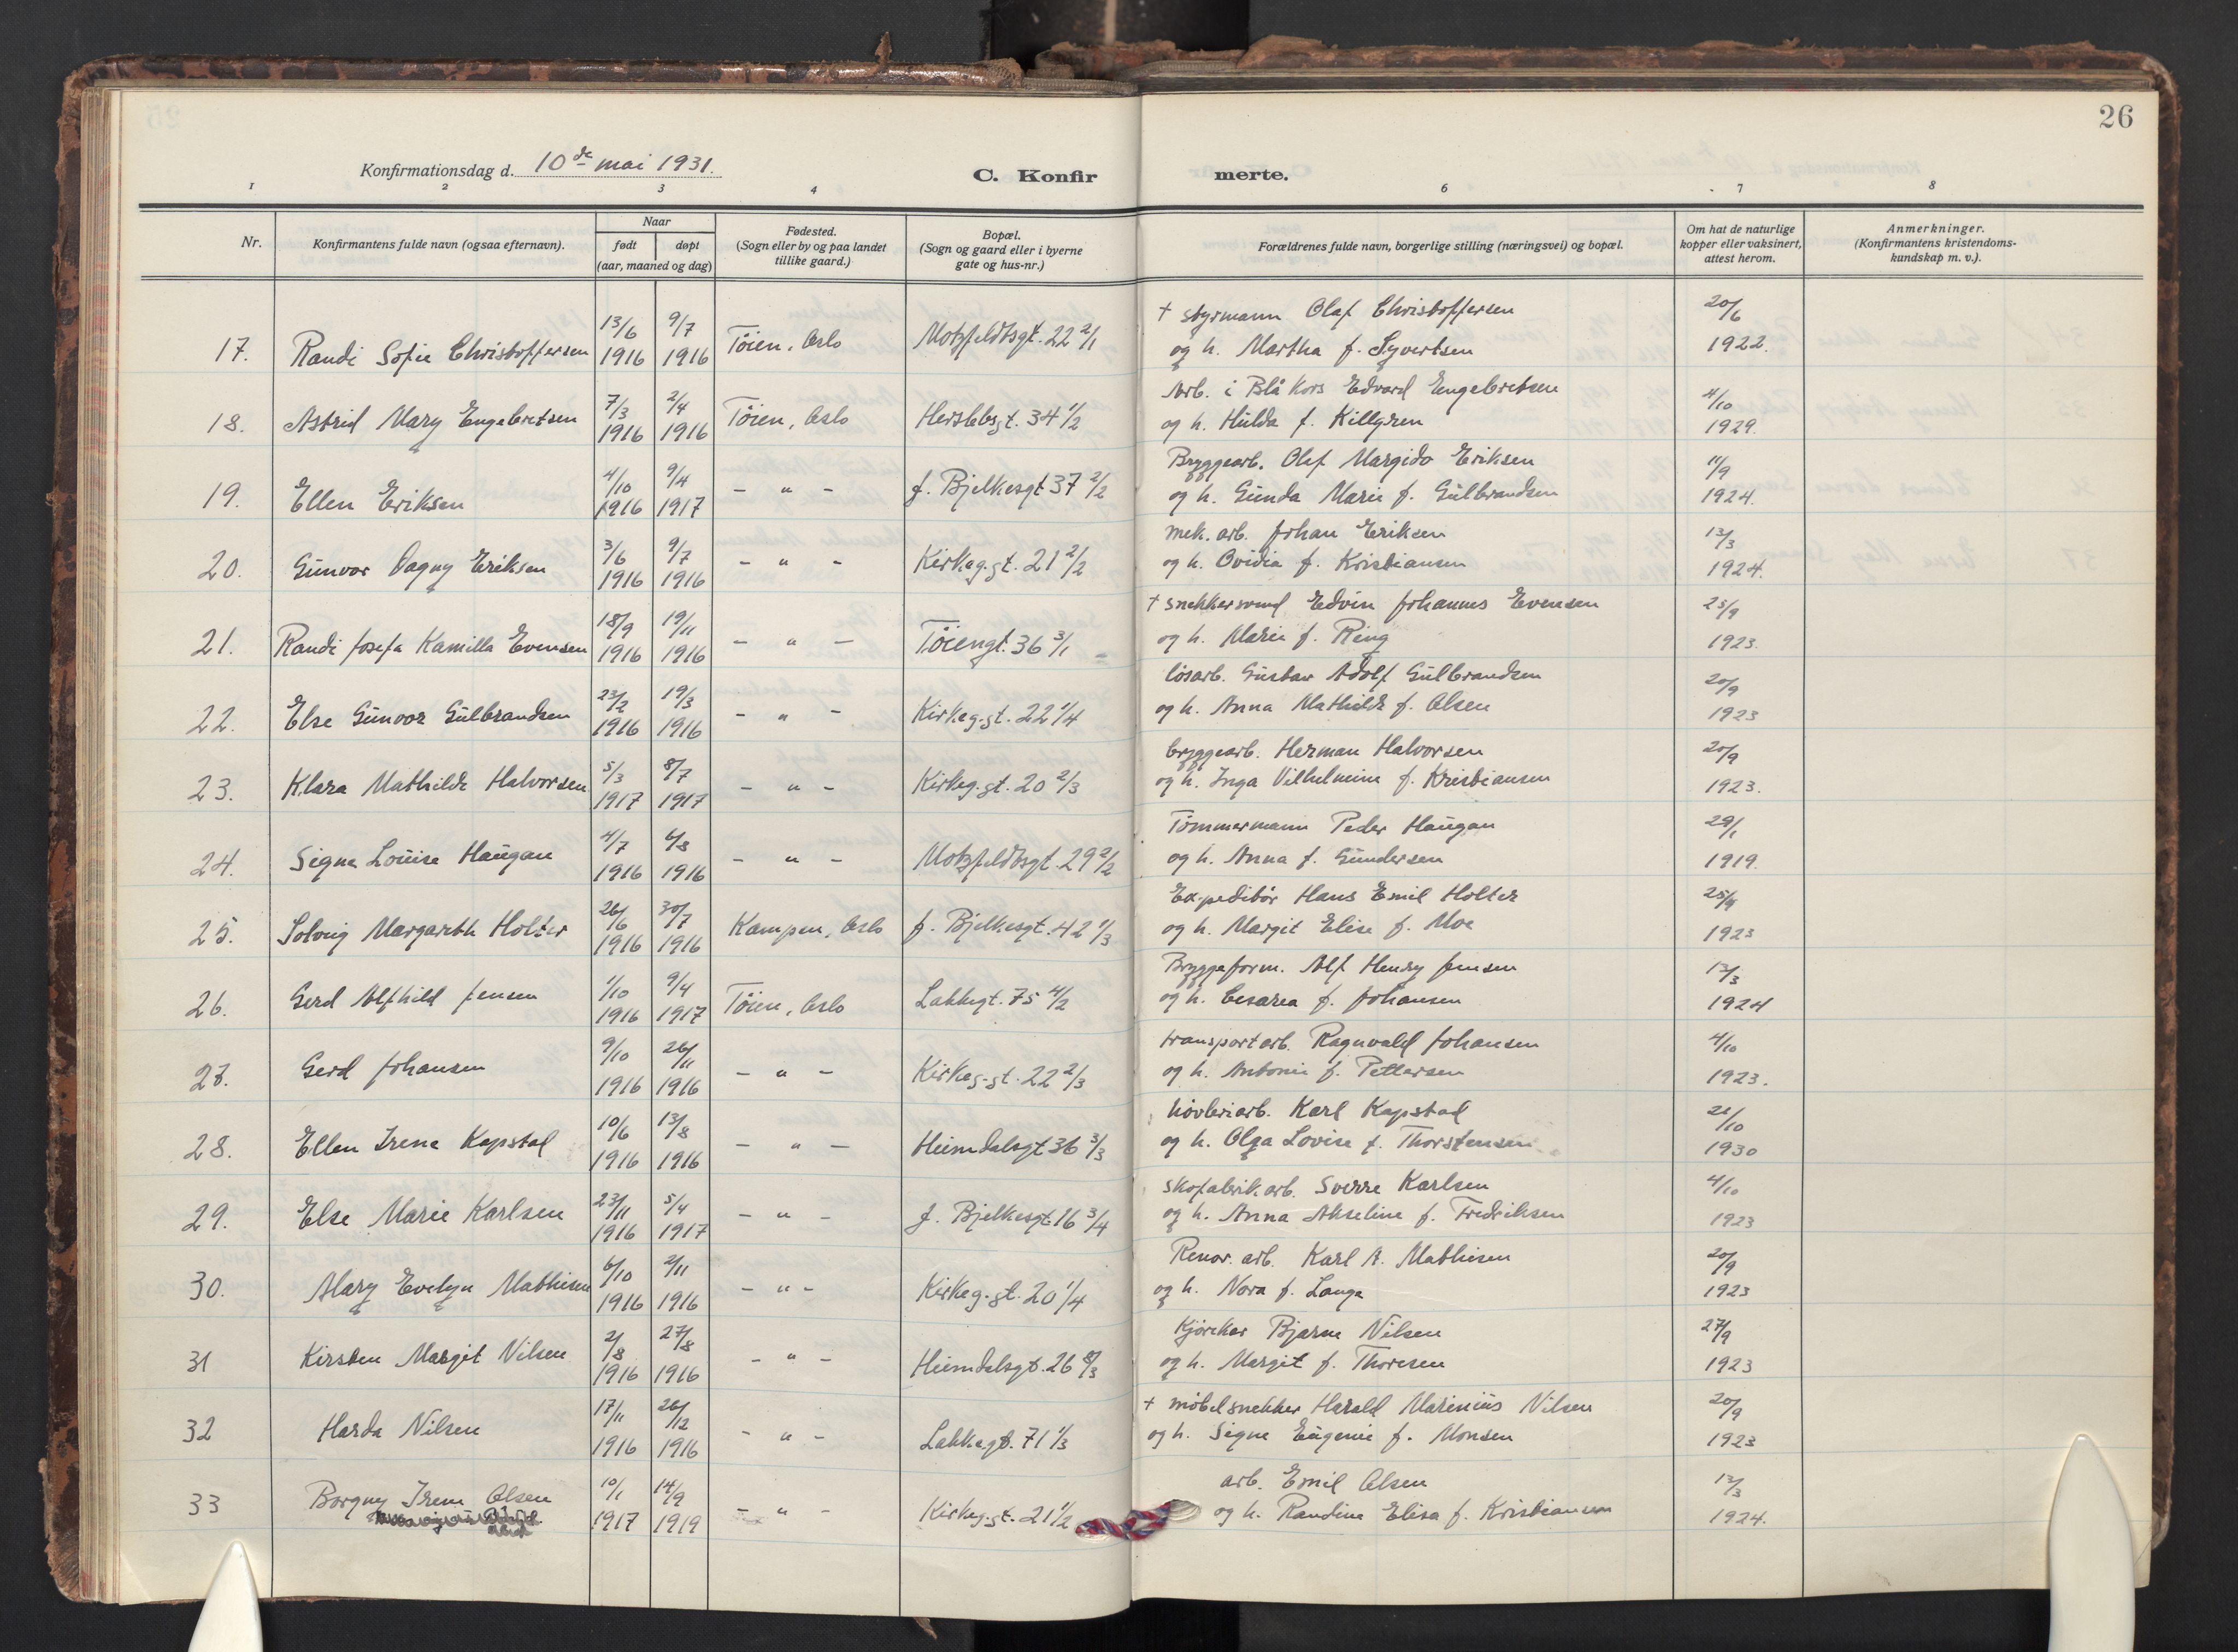 26
Konfirmationsdag d. 10de mai 1931.
C. Konfirmerte.
1 2 3 4 6 7 8
Nr.
Konfirmantens fulde navn (ogsaa efternavn).
Naar
født døpt
(aar, maaned og dag)
Fødested.
(Sogn eller by og paa landet
tillike gaard.)
Bopæl.
(Sogn og gaard eller i byerne
gate og hus-nr.)
Forældrenes fulde navn, borgerlige stilling (næringsvei) og bopæl.
Om hat de naturlige
kopper eller vaksinert,
attest herom.
Anmerkninger.
(Konfirmantens kristendoms-
kundskap m. v.).
13/6 9/7 + styrmann Olaf Christoffersen 20/6
17. Randi Sofie Christoffersen 1916 1916 Töien, Oslo Motzfeldtsgt. 22 2/1 og h. Martha f. Syvertsen 1922.
7/3 2/4 Arb. i Blå Kors Edvard Engebretsen 4/10
18. Astrid Mary Engebretsen 1916 1916 Töien, Oslo Herslebsgt. 34 1/2 og h. Hulda f. Killgren 1929.
4/10 9/4 Bryggearb. Olaf Margido Eriksen 11/9
19. Ellen Eriksen 1916 1917 - " - J. Bjelkesgt 37 2/2 og h. Gunda Marie f. Gulbrandsen 1924.
3/6 9/7 mek. arb. Johan Eriksen 13/3
20. Gunvor Dagny Eriksen 1916 1916 - " - Kirkeg.gt. 21 2/2 og h. Ovidia f. Kristiansen 1924.
18/9 19/11 + snekkersvend Edvin Johannes Evensen 25/9
21. Randi Josefa Kamilla Evensen 1916 1916 - " - Töiengt. 36 3/1 og h. Marie f. Ring 1923.
23/2 19/3 lösarb. Gustav Adolf Gulbrandsen 20/9
22. Else Gunvor Gulbrandsen 1916 1916 - " - Kirkeg.gt. 22 1/4 og h. Anna Mathilde f. Olsen 1923
5/3 8/7 bryggearb. Herman Halvorsen 20/9
23. Klara Mathilde Halvorsen 1917 1917 - " - Kirkeg.gt. 20 2/3 og h. Inga Vilhelmine f. Kristiansen 1923.
4/7 6/8 Tömmermann Peder Haugan 29/1
24. Signe Louise Haugan 1916 1916 - " - Motzfeldtsgt. 29 2/2 og h. Anna f. Gundersen 1919.
26/6 30/7 Expeditör Hans Emil Holter 25/9
25. Solveig Margareth Holter 1916 1916 Kampen, Oslo J. Bjelkesgt. 42 1/3 og h. Margit Elise f. Moe 1923
1/10 9/4 Bryggeform. Alf Henry Jensen 13/3
26. Gerd Alfhild Jensen 1916 1917 Töien, Oslo Lakkegt. 75 4/2 og h. Cesarea f. Johansen 1924
9/10 26/11 transportarb. Ragnvald Johansen 4/10
27. Gerd Johansen 1916 1916 - " - Kirkeg.gt. 22 2/3 og h. Antonie f. Pettersen 1923.
10/6 13/8 hövleriarb. Karl Kapstad 21/10
28. Ellen Irene Kapstad 1916 1916 - " - Heimdalsgt 36 3/3 og h. Olga Lovise f. Thorstensen 1930
23/11 5/4 skofabrik.arb. Sverre Karlsen 4/10
29. Else Marie Karlsen 1916 1917 - " - J. Bjelkesgt. 16 3/4 og h. Anna Akseline f. Fredriksen 1923
6/10 2/11 Renov. arb. Karl A. Mathiesen 20/9
30. Mary Evelyn Mathiesen 1916 1916 - " - Kirkeg.gt. 20 1/4 og h. Nora f. Lange 1923
2/8 27/8 Kjörekar Bjarne Nilsen 27/9
31 Kirsten Margit Nilsen 1916 1916 - " - Heimdalsgt. 26 og h. Margit f. Thoresen 1923
17/11 26/12 + möbelsnekker Harald Marinius Nilsen 20/9
32 Harda Nilsen 1916 1916 - " - Lakkegt. 71 1/3 og h. Signe Eugenie f. Monsen 1923
10/1 14/9 arb. Emil Olsen 13/3
33 Borgny Irene Olsen 1917 1919 - " - Kirkeg.gt. 21 1/2 og h. Randine Elisa f. Kristiansen 1924.